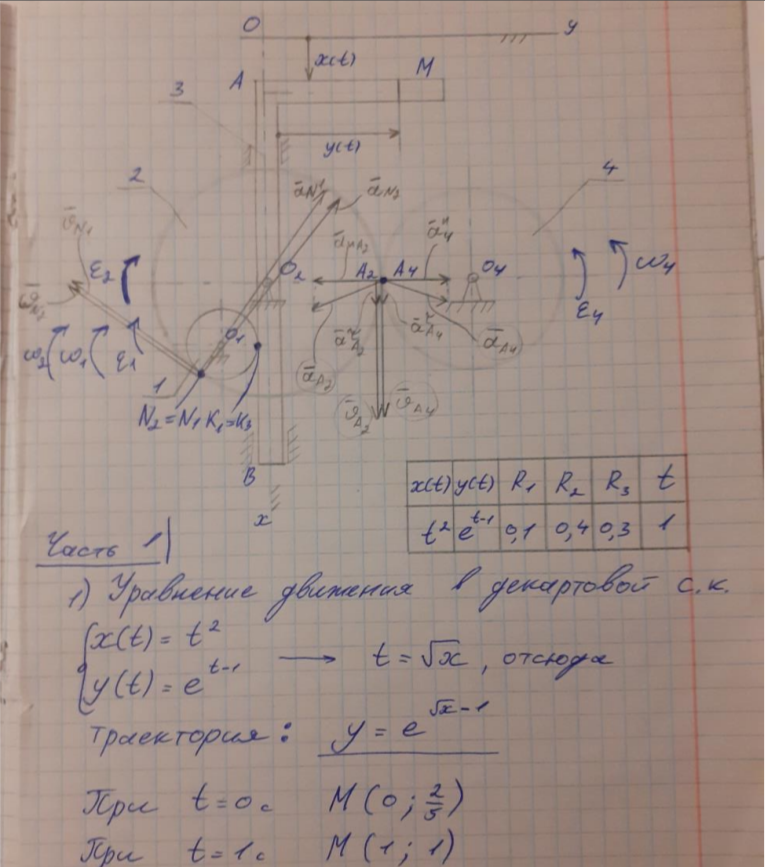 O y
x(t)
A M
3
y(t)
2 4
v̄N1 āN1 āN2
ε2 āⁿA2 āⁿ4 ω4
O2 A2 A4 O4
ω2 ω1 ε1 O1 āᵗA2 āᵗA4 āA4 ε4
1 āA2
N2=N1 K1=K3 v̄A2 v̄A4
B
x
x(t) y(t) R1 R2 R3 t
t² e^(t-1) 0,1 0,4 0,3 1
Часть 1
1) Уравнение движения в декартовой с.к.
{x(t) = t²
{y(t) = e^(t-1) → t = √x, отсюда
траектория: y = e^(√x-1)
При t=0с M(0; 2/5)
При t=1с M(1; 1)